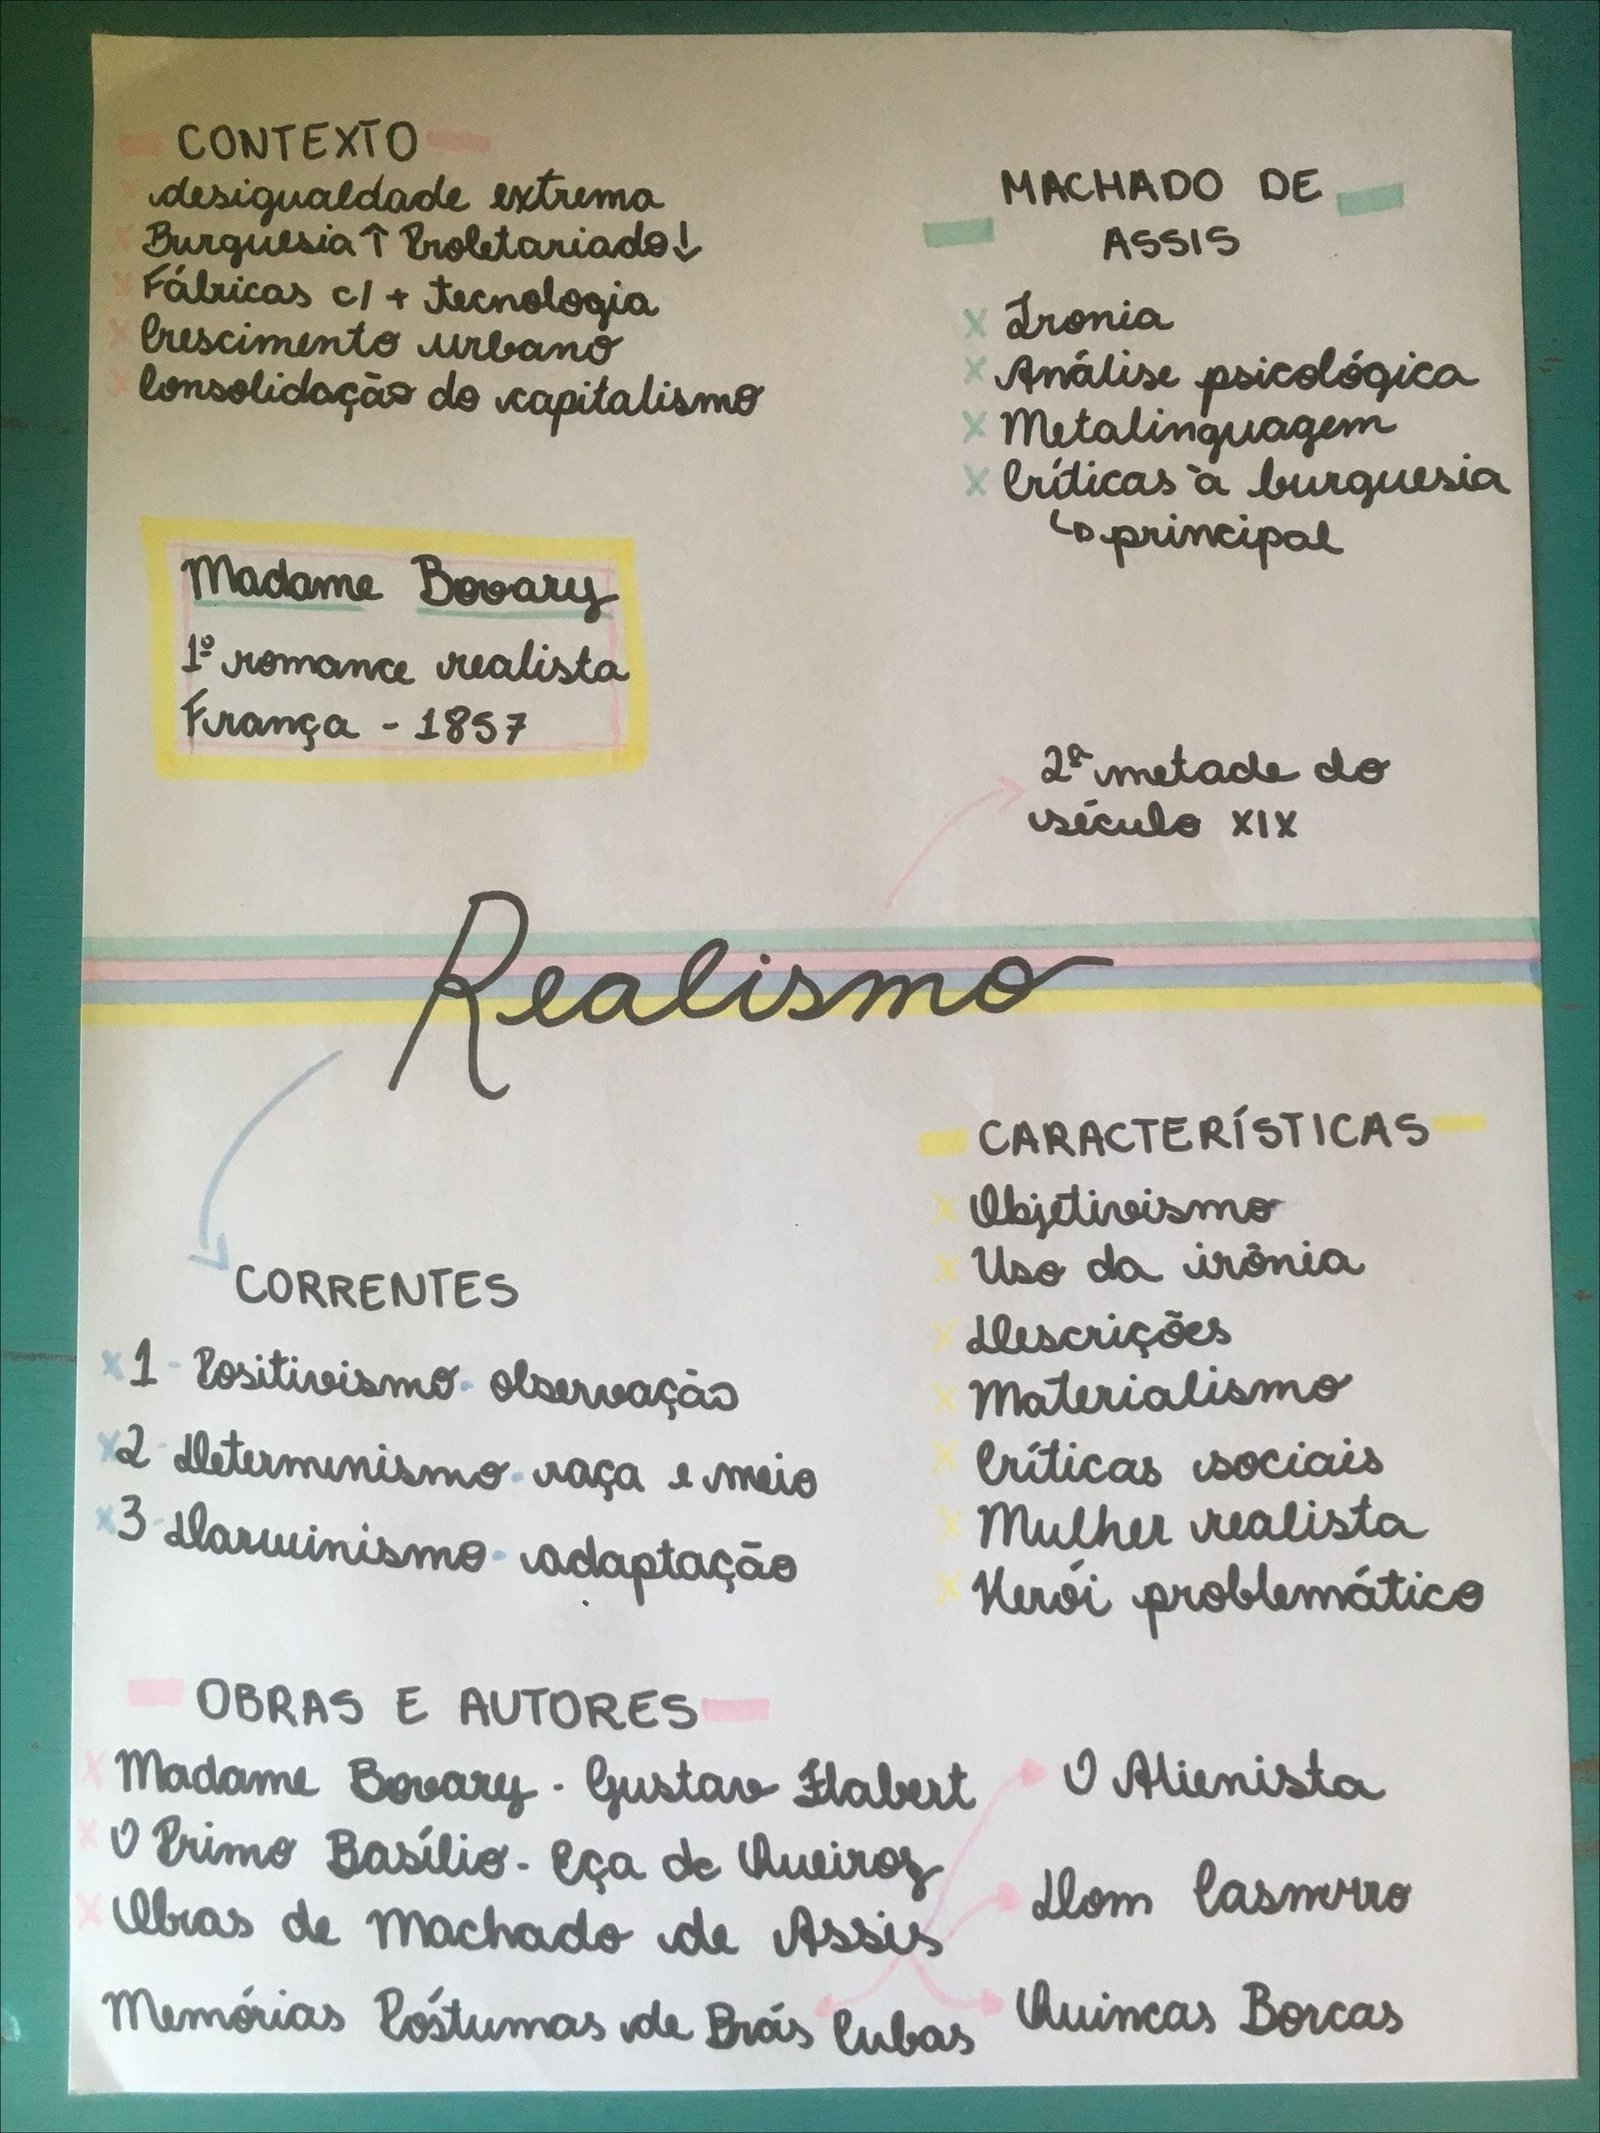 CONTEXTO
desigualdade extrema
Burguesia ↑ Proletariado ↓
Fábricas c/ + tecnologia
Crescimento urbano
Consolidação do capitalismo
MACHADO DE
ASSIS
Ironia
Análise psicológica
Metalinguagem
Críticas à burguesia
↳ principal
Madame Bovary
1º romance realista
França - 1857
2ª metade do
século XIX
Realismo
CORRENTES
1 - Positivismo - observação
2 - Determinismo - raça e meio
3 - Darwinismo - adaptação
CARACTERÍSTICAS
Objetivismo
Uso da irônia
Descrições
Materialismo
Críticas sociais
Mulher realista
Herói problemático
OBRAS E AUTORES
Madame Bovary - Gustav Flabert
O Primo Basílio - Eça de Queiroz
Obras de Machado de Assis
Memórias Póstumas de Brás Cubas
O Alienista
Dom Casmurro
Quincas Borcas